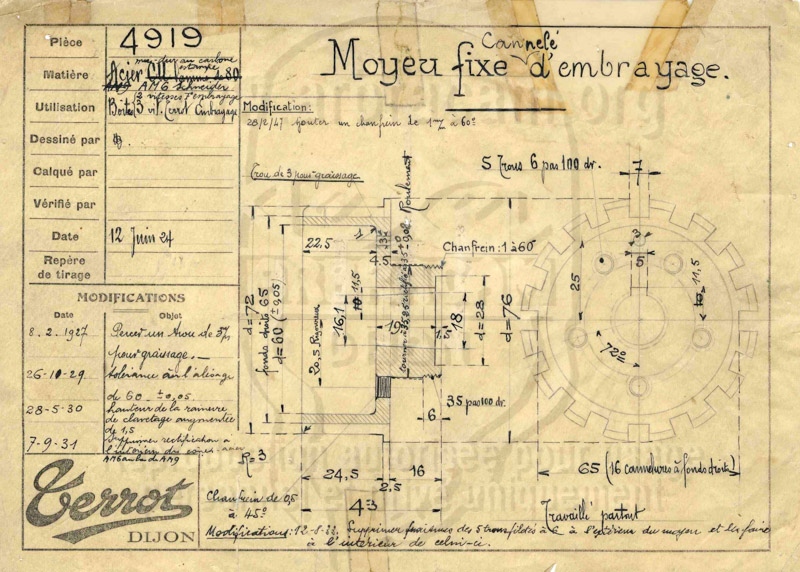 Pièce
4919
Moyeu fixe Cannelé d'embrayage.
Matière
AM6 Schneider
Utilisation
Dessiné par
Calqué par
Vérifié par
Date
12 Juin 24
Repère
de tirage
Modification:
28/2/47 Ajouter un chanfrein de 1m/m à 60°
Trou de 3 pour graissage
5 Trous 6 pas 100 dr.
7
Roulement
Chanfrein: 1 à 60
22,5
4.5
3
5
25
11,5
72°
d=72
fonds droits 65
d=60 (± 0,05)
20,5 Rainure
16,1
11,5
19
1,5
18
d=28
d=76
35 pas 100 dr.
6
R=3
24,5
16
2,5
43
65 (16 cannelures à fonds droits)
Chanfrein de 0,5
à 45°
Travaillé partout
MODIFICATIONS
Date Objet
8.2.1927 Percer un trou de 3m/m
pour graissage.
26-10-29 tolérance à l'alésage
de 60 ± 0,05
28-5-30 hauteur de la rainure
de clavetage augmentée
de 1,5
7-9-31 Supprimer rectification à
AM6 au lieu de AM9
Terrot
DIJON
Modifications: 12-8-32. Supprimer fraisures des 5 trous filetés à 6 à l'extérieur du moyeu et les faire
à l'intérieur de celui-ci.